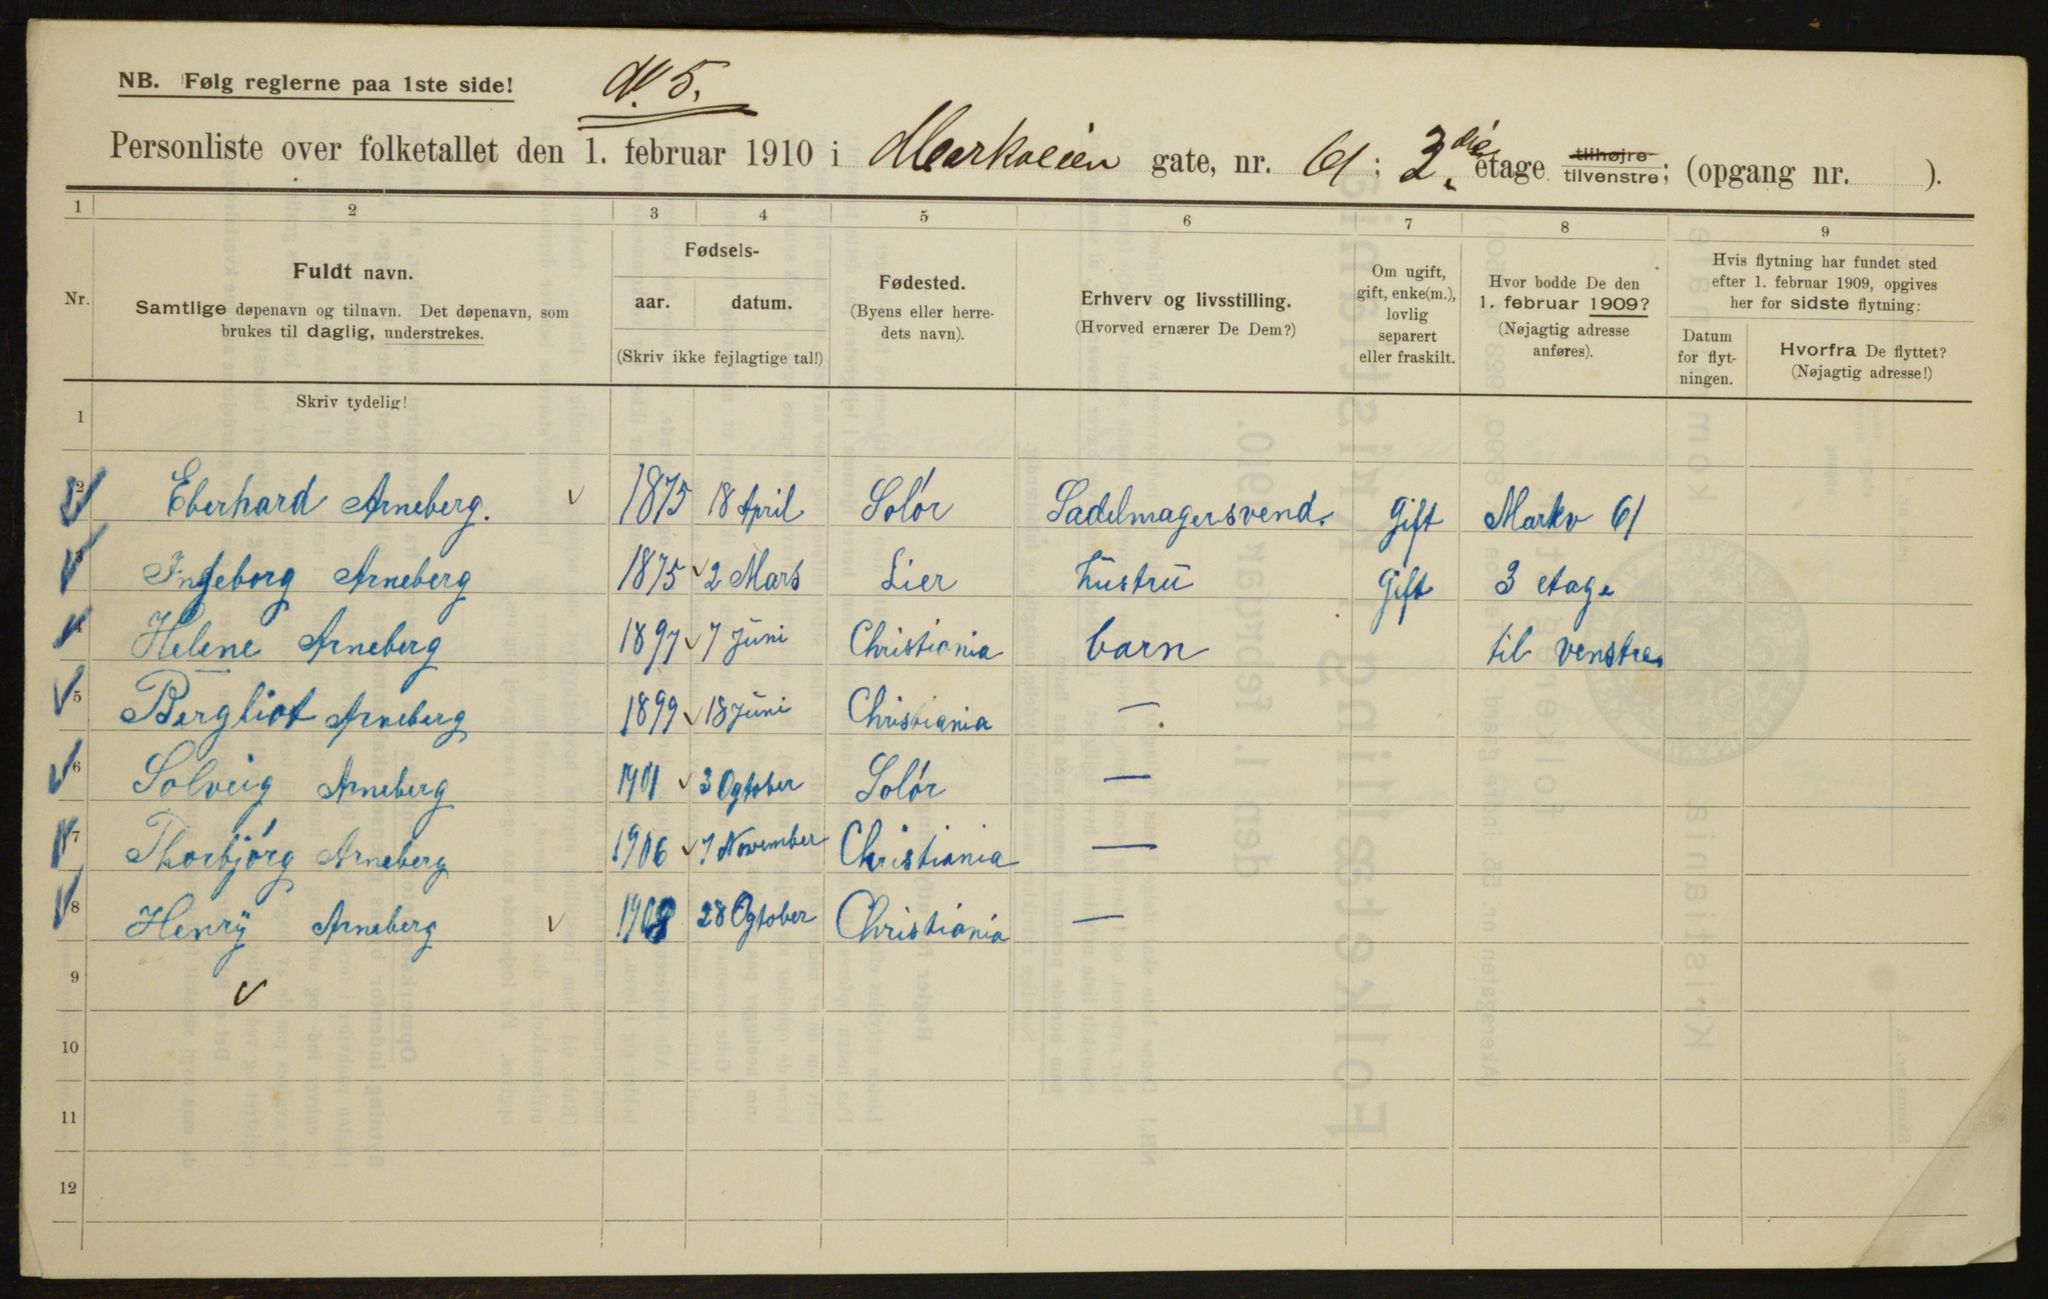 N. 5.
NB. Følg reglerne paa 1ste side!
Personliste over folketallet den 1. februar 1910 i Markveien gate, nr. 61 : 3die etage tilhøjre tilvenstre; (opgang nr. ).
1 2 3 4 5 6 7 8 9
Nr.
Fuldt navn.
Samtlige døpenavn og tilnavn. Det døpenavn, som
brukes til daglig, understrekes.
Fødsels-
aar. datum.
(Skriv ikke fejlagtige tal!)
Fødested.
(Byens eller herre-
dets navn).
Erhverv og livsstilling.
(Hvorved ernærer De Dem?)
Om ugift,
gift, enke(m.),
lovlig
separert
eller fraskilt.
Hvor bodde De den
1. februar 1909?
(Nøjagtig adresse
anføres).
Hvis flytning har fundet sted
efter 1. februar 1909, opgives
her for sidste flytning:
Datum
for flyt-
ningen.
Hvorfra De flyttet?
(Nøjagtig adresse!)
Skriv tydelig!
1
2 Eberhard Arneberg. 1875 18 April Solør Sadelmagersvend. Gift Markv 61
3 Ingeborg Arneberg 1875 2 Mars Lier Hustru Gift 3 etage
4 Helene Arneberg 1897 7 Juni Christiania barn til venstre.
5 Bergliot Arneberg 1899 18 Juni Christiania —
6 Solveig Arneberg 1901 3 Ogtober Solør —
7 Thorbjørg Arneberg 1906 7 November Christiania —
8 Henry Arneberg 1908 28 Ogtober Christiania —
9
10
11
12